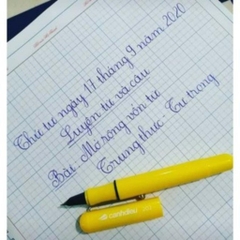 Thứ tư ngày 17 tháng 9 năm 2020
Luyện từ và câu
Bài: Mở rộng vốn từ
Trung thực - Tự trọng